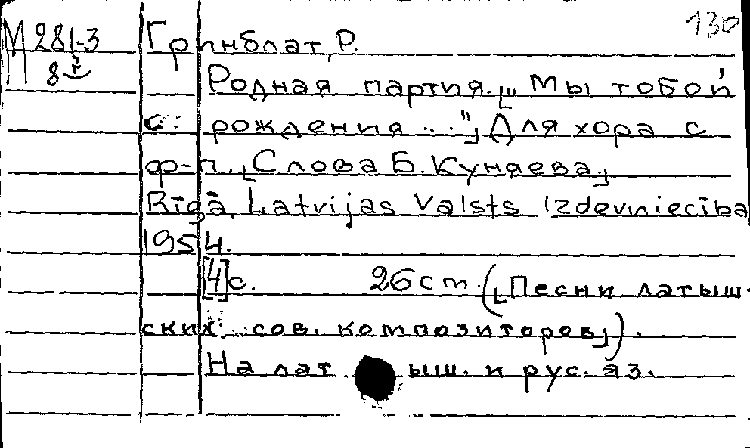 130
М 281-3 Гринблат, Р.
8° Родная партия. ["Мы тобой
с рождения..."] Для хора с
ф-п. [Слова Б. Куняева]
Rīgā, Latvijas Valsts Izdevniecība
1954.
[4] с. 26 cm. ([Песни латыш-
ских сов. композиторов]).
На латыш. и рус. яз.